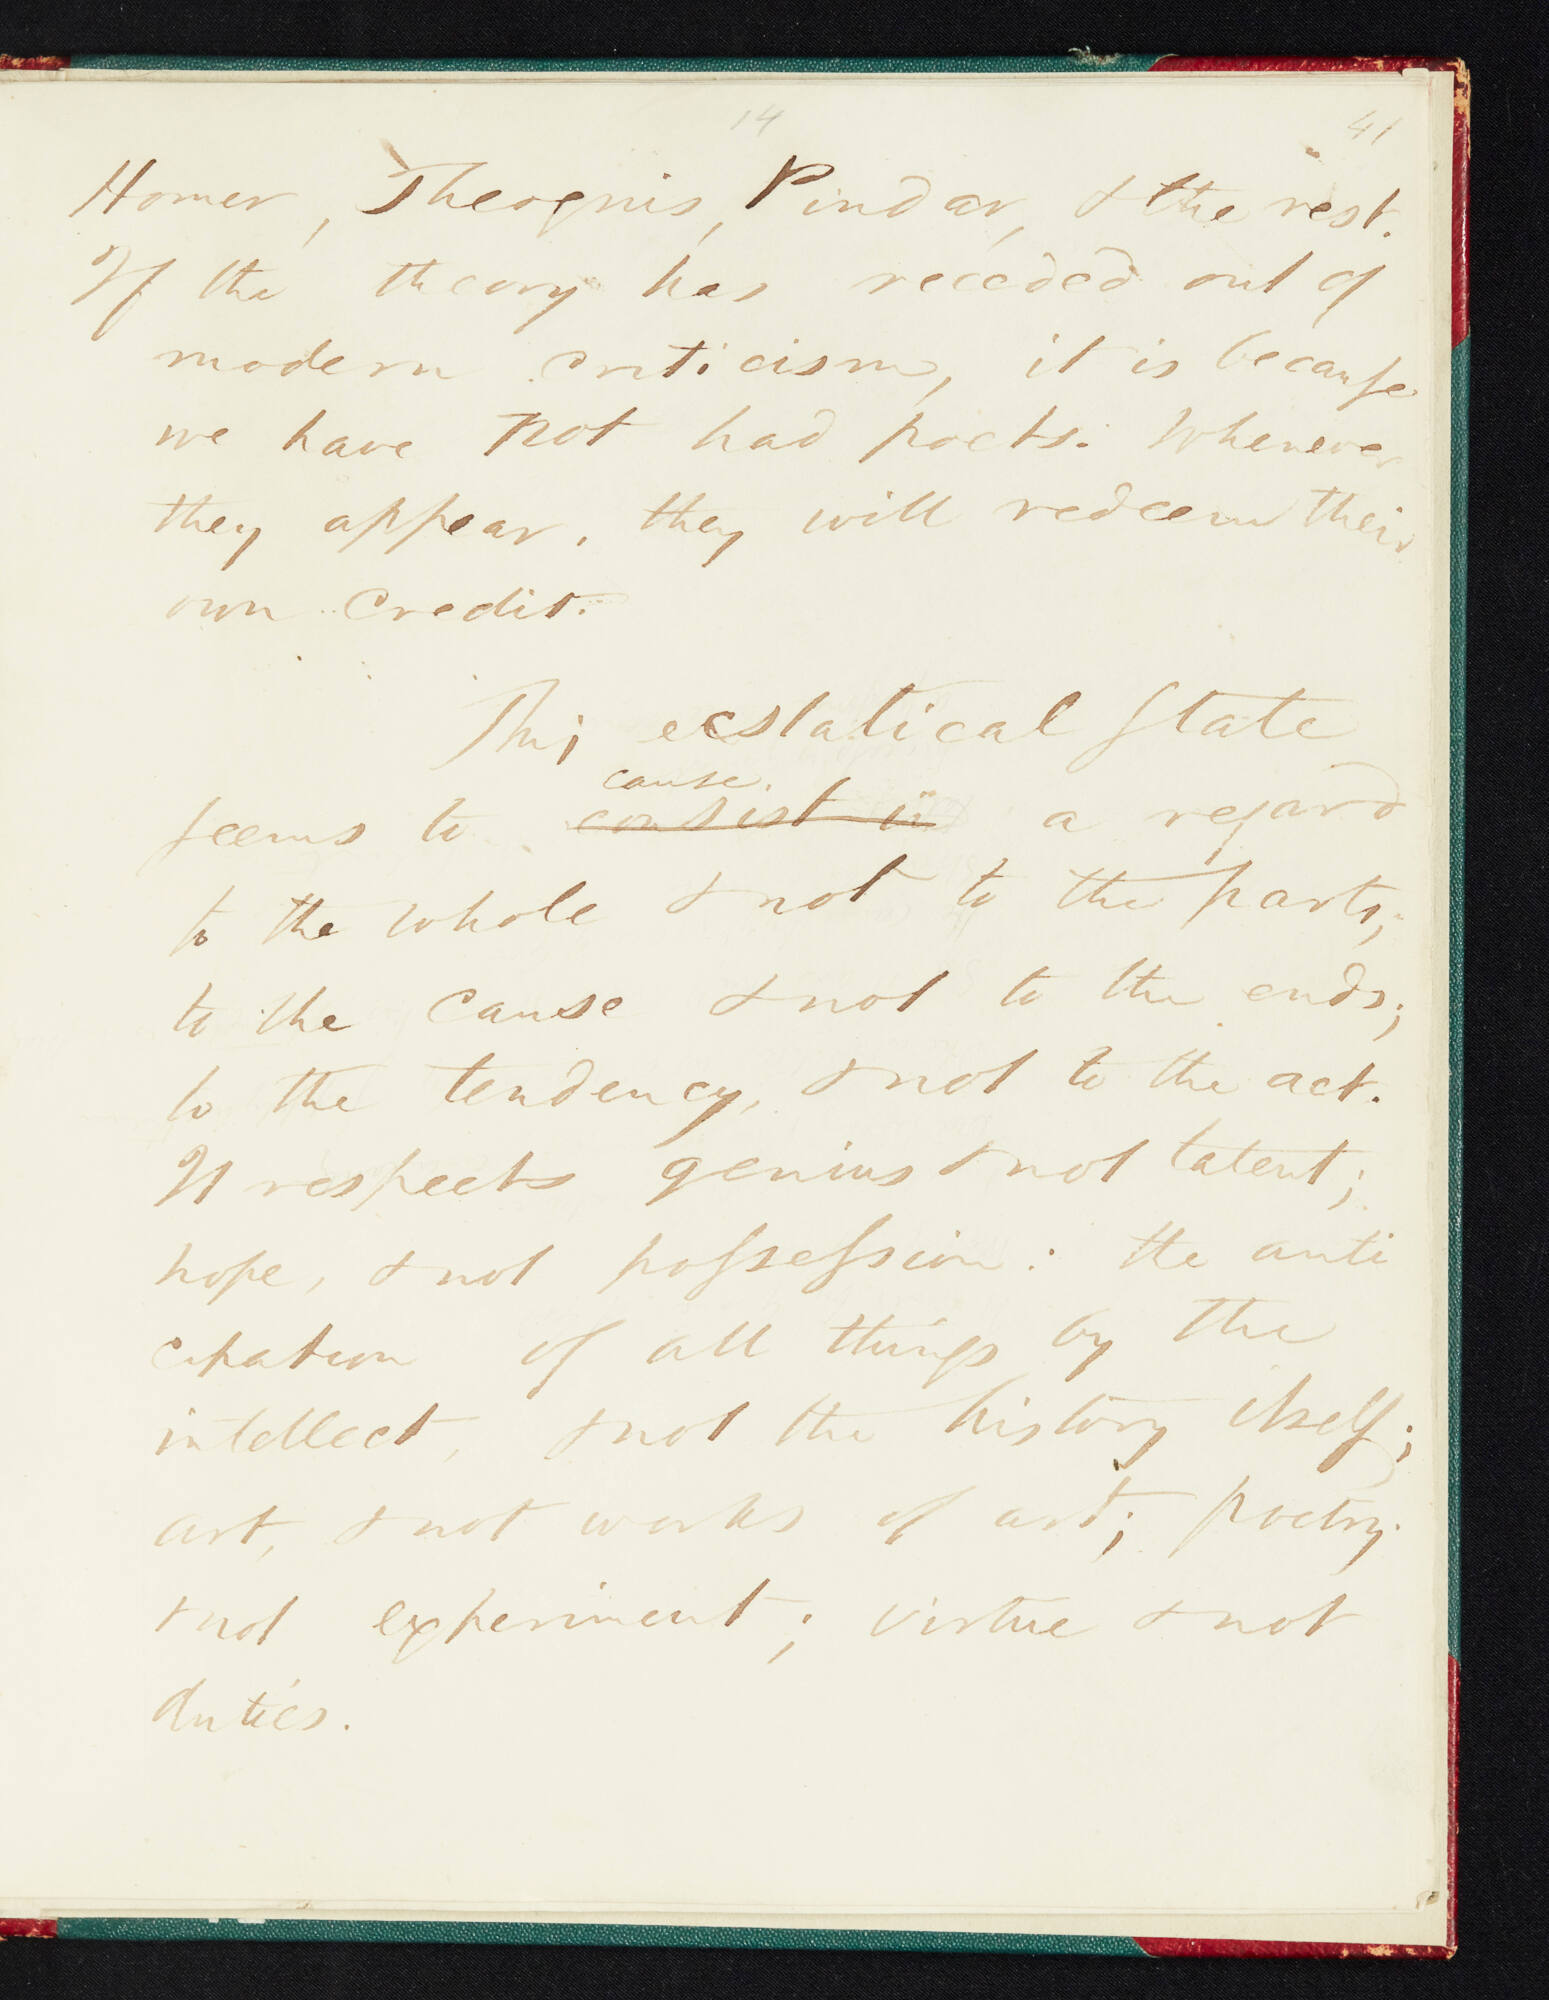 14
41
Homer, Theognis, Pindar, & the rest.
If the theory has receded out of
modern criticism, it is because
we have not had poets. Whenever
they appear, they will redeem their
own credit.
This ecstatical state
cause
seems to consist in a regard
to the whole & not to the parts;
to the cause & not to the ends;
to the tendency, & not to the act.
It respects genius & not talent;
hope, & not possession: the anti
cipation of all things by the
intellect, & not the history itself;
art, & not works of art; poetry
& not experiment; virtue & not
duties.